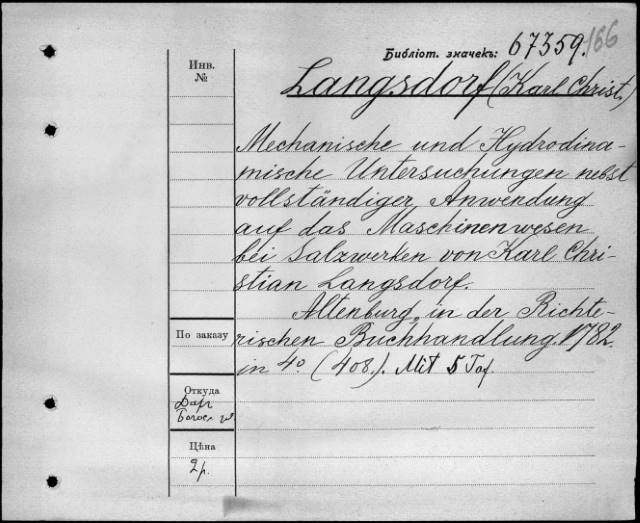 Библіот. значекъ: 67359. 166
Инв.
№
Langsdorf (Karl Christ.)
Mechanische und Hydrodina-
mische Untersuchungen nebst
vollständiger Anwendung
auf das Maschinenwesen
bei Salzwerken von Karl Chri-
stian Langsdorf.
Altenburg, in der Richte-
По заказу
rischen Buchhandlung. 1782.
in 4° (408.). Mit 5 Taf.
Откуда
Даръ
Цѣна
2р.